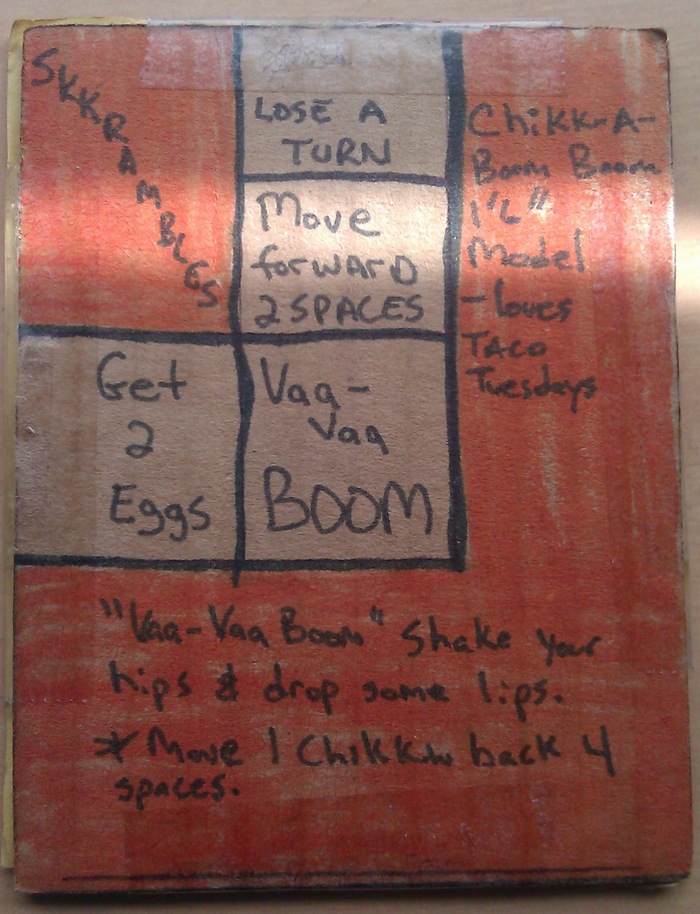 SKKRAMBLGS
LOSE A
TURN
Move
forward
2 SPACES
Get
2
Eggs
Vaa-
Vaa
BOOM
Chikk-A-
Boom Boom
1 "L"
Model
- loves
TACO
Tuesdays
"Vaa-Vaa Boom" Shake your
hips & drop some lips.
* Move 1 Chikkin back 4
spaces.